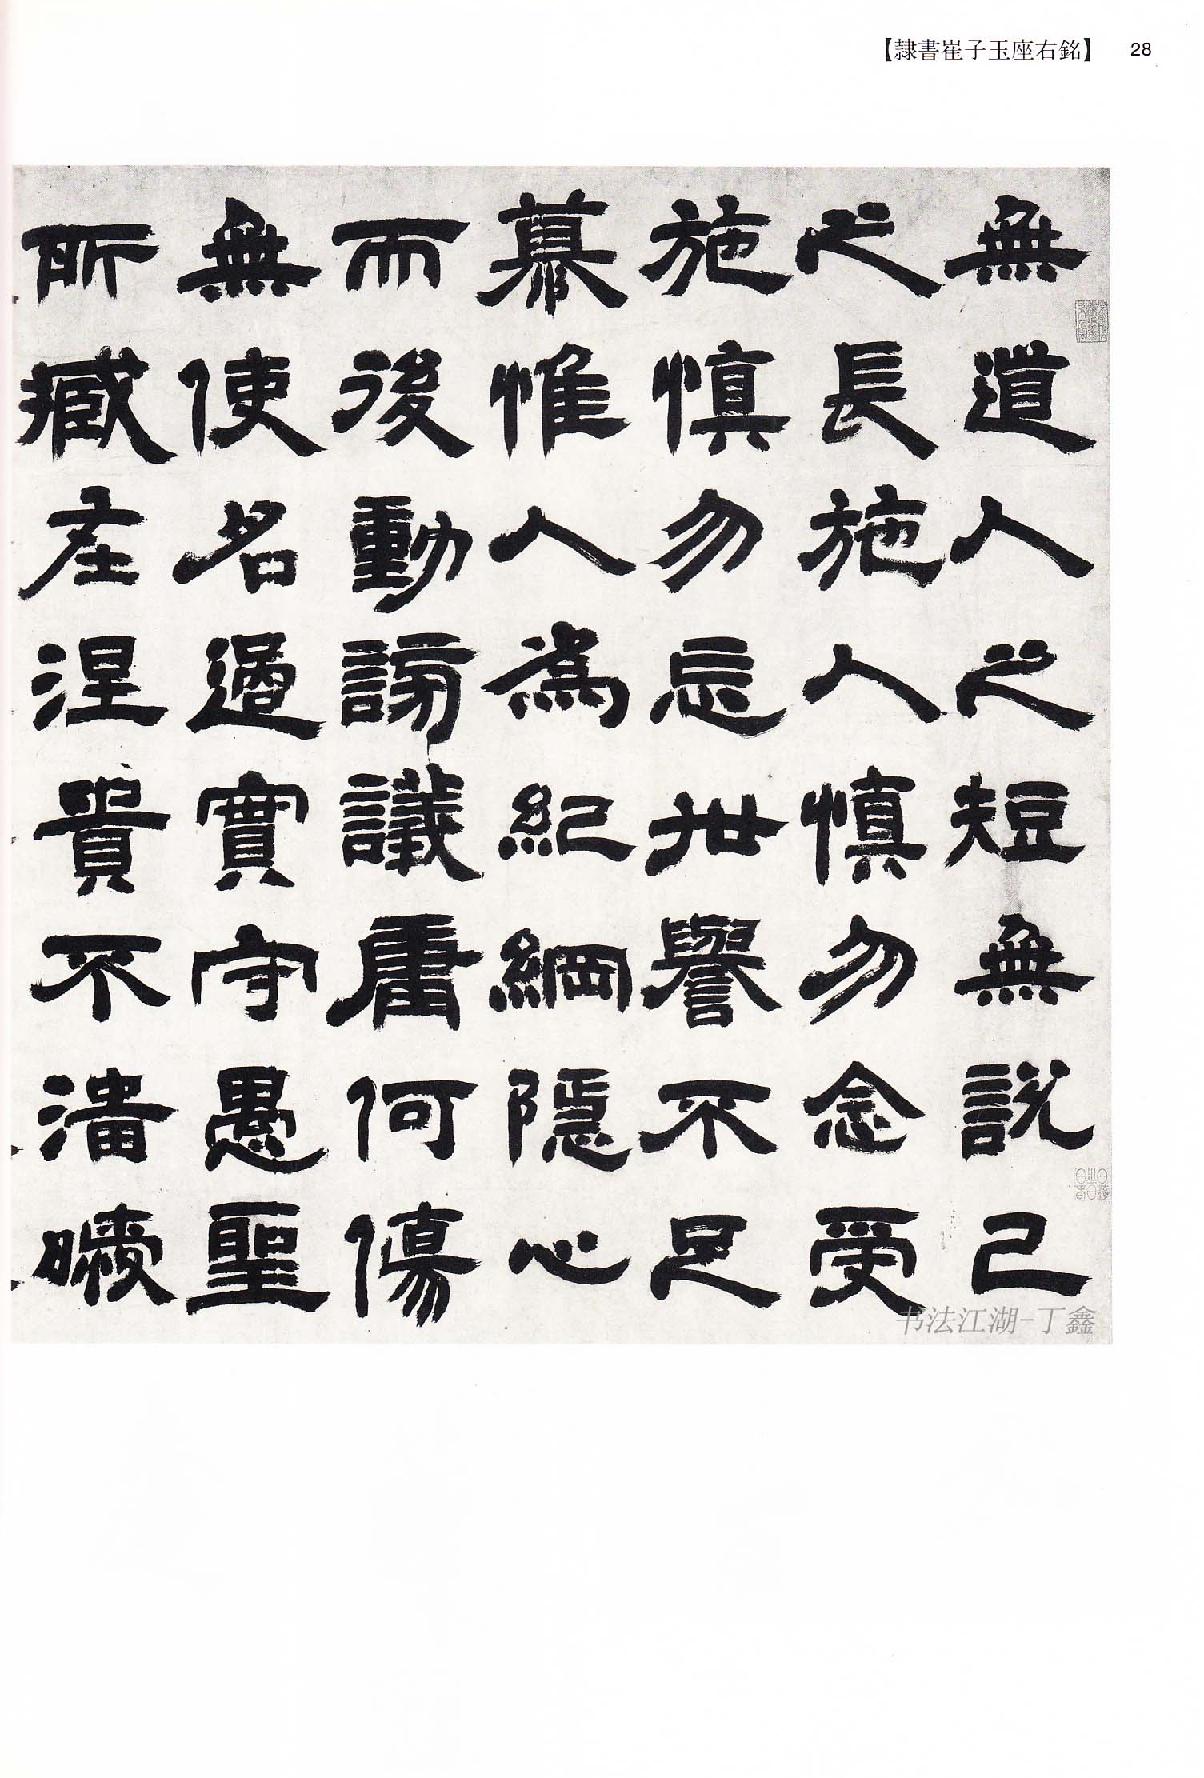 【隸書崔子玉座右銘】 28
無道人之短無說己
之長施人慎勿念受
施慎勿忘世譽不足
慕惟人為紀綱隱心
而後動謗議庸何傷
無使名過實守愚聖
所臧在涅貴不淄曖
书法江湖-丁鑫